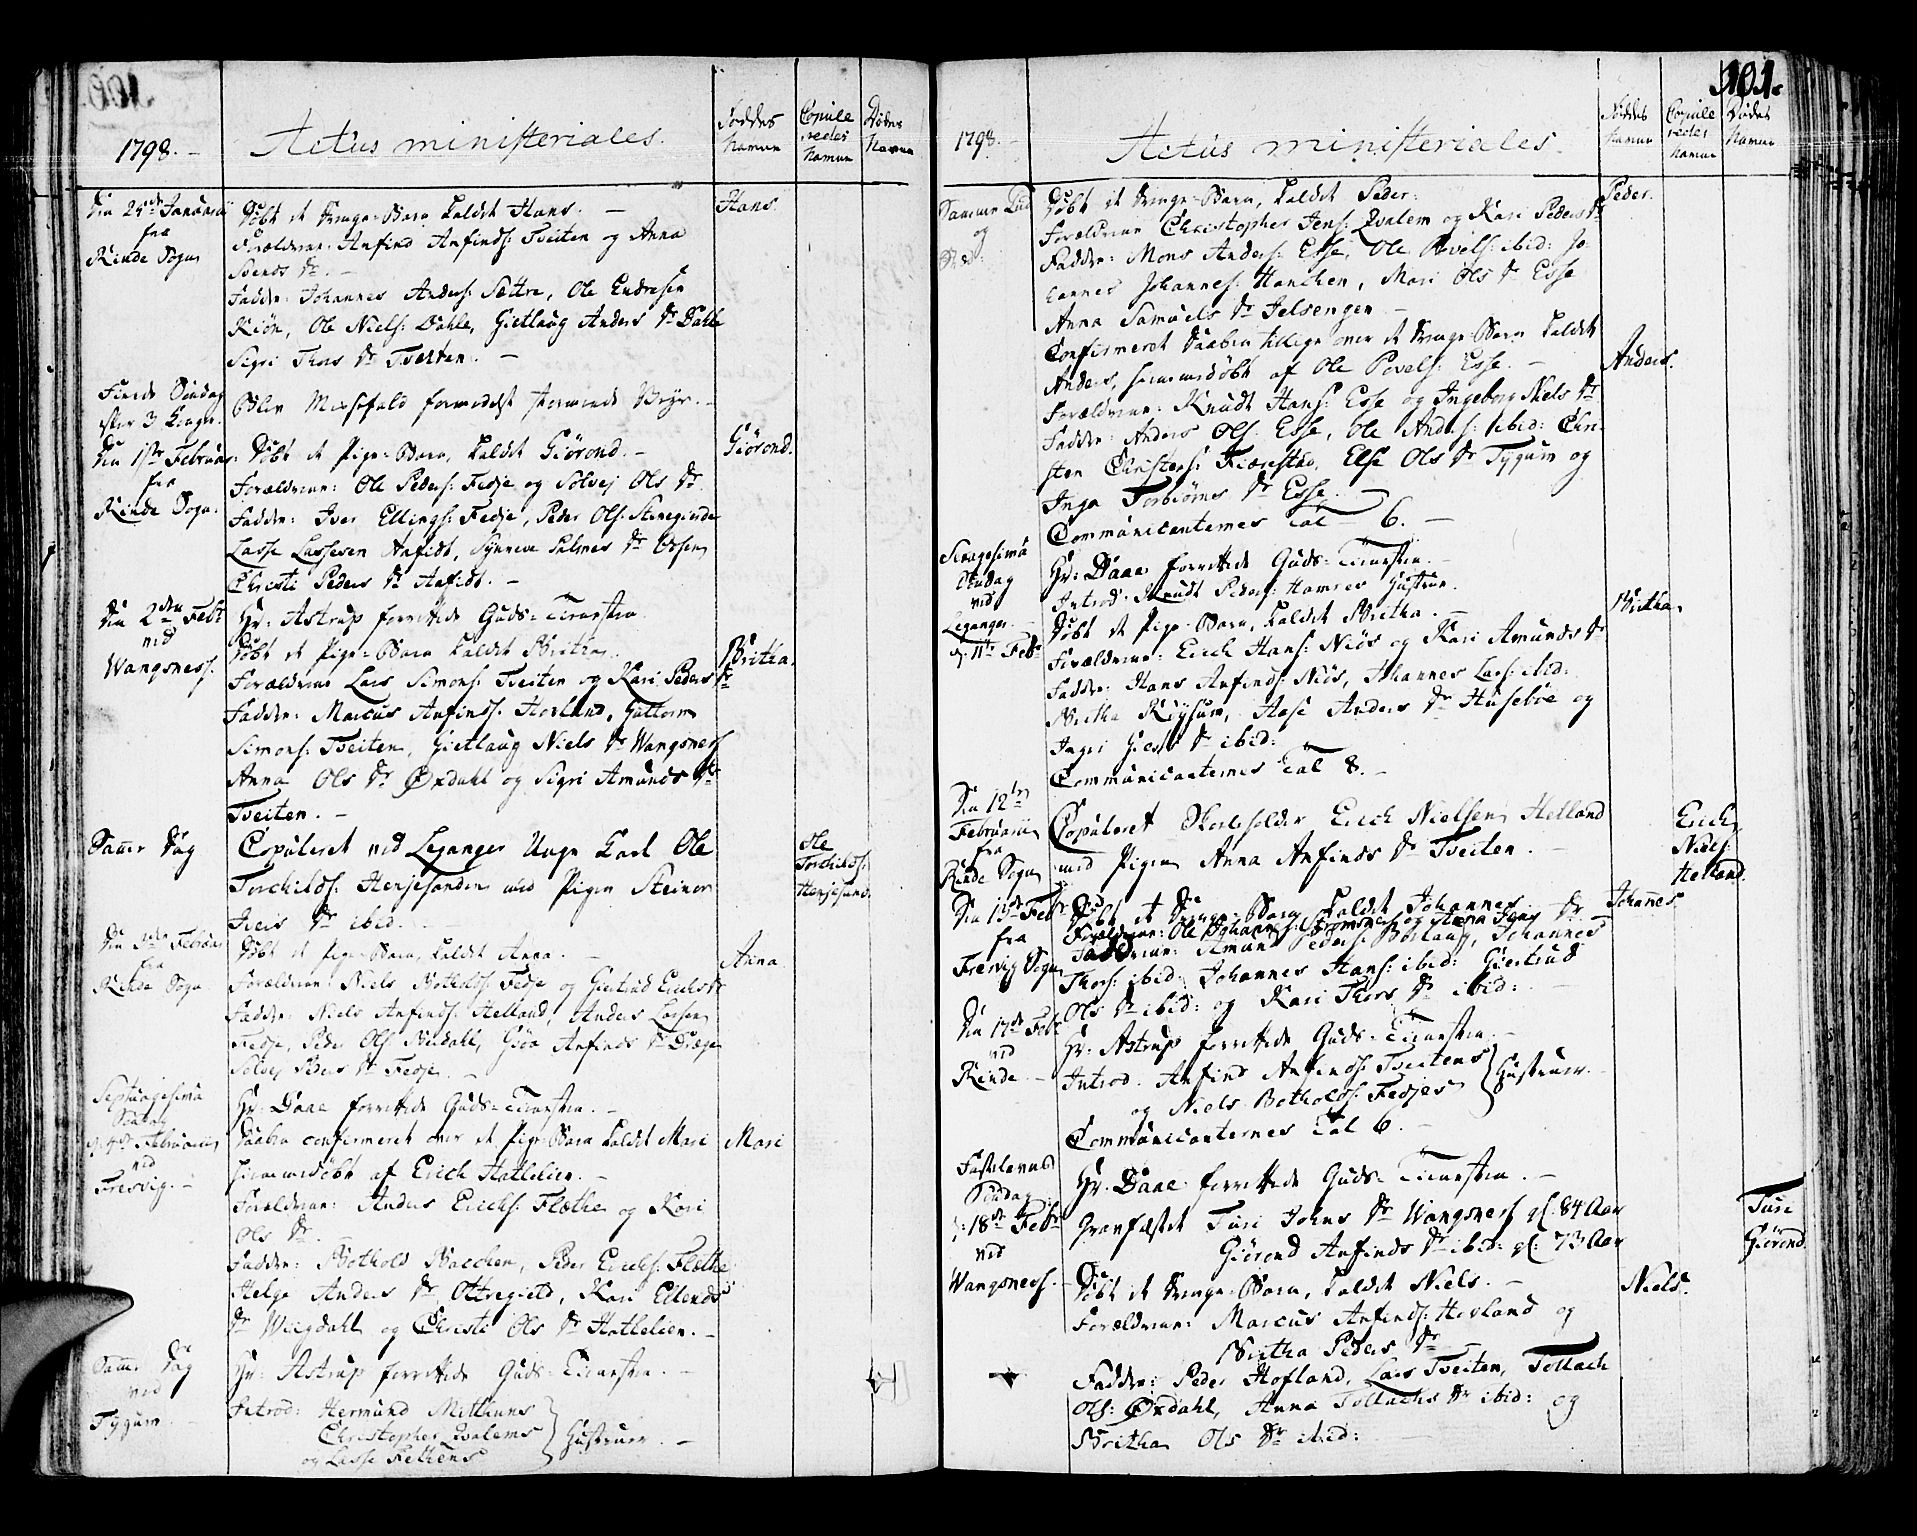 1798.
Actus ministeriales.
Føddes Namne
Copule redes Namne
Dødes Namne
Den 25de Januarii fra Rinde Sogn
Døbt et Drenge-Barn kaldet Hans. —
Hans.
Forældrene: Anfind Anfinds: Tveiten og Anna
Svends Dr. —
Faddere: Johannes Anders: Sættre, Ole Endresen
Ole Niels: Dahle, Giertlaug Anders Dr Dahle
Sigri Thors Dr Tveiten. —
Første Søndag efter 3 Konger.
Blev Messefald formedelst stormende Veyr. —
Den 1ste Februar: fra Rinde Sogn.
Døbt et Pige-Barn, kaldet Giørond. —
Giørond.
Forældrene: Ole Peders: Fedje og Solvej Ols Dr.
Faddere: Iver Ellings: Fedje, Peder Ols:
Lasse Lassesen Anfidt, Synneve Palmes Dr
Christi Peders Dr Anfidt. —
Den 2den Febr ved Wangsness.
Hr: Astrup forrettede Guds-Tieneste.
Døbt et Pige-Barn kaldet Britha.
Britha.
Forældrene Lars Simons: Tveiten og Kari Peders Dr
Faddere: Marcus Anfinds: Hovland, Guttorm
Simons: Tveiten, Giertlaug Niels Dr Wangsness
Anna Ols Dr Øxdahl og Sigri Amunds Dr
Tveiten. —
Samme Dag
Copuleret ved Leganger Unge Karl Ole
Torchilds: Henjesanden med Pigen Steinor
Ole Torchilds: Henjesand.
Dr ibid.
Den 3die Februar fra Rinde Sogn
Døbt et Pige-Barn, kaldet Anna. —
Anna
Forældrene: Niels Botholds: Fedje og Giertrud Erichs Dr
Faddere: Niels Anfinds: Helland, Anders Larsen
Fedje, Peder Ols: Nordahl, Giøa Anfinds Dr Drage
Solvej Peders Dr Fedje.
Septuagesima Søndag d. 4de Februarii ved Fresvig. —
Hr: Daae forrettede Guds-Tieneste. —
Daaben confirmeret over et Pige-Barn kaldet Mari
Mari
hiemmedøbt af Erich Hatlelien. —
Forældrene: Anders Erichs: Fløthe og Kari
Ols Dr.
Faddere: Bothold Bacchen, Peder Erichs: Fløthe
Helge Anders Dr Ottregield, Kari Eilends
Dr Wiigdahl og Christi Ols Dr Hatlelien. —
Samme Dag ved Tygum. —
Hr: Astrup forrettede Guds-Tieneste. —
Introd: Hermund Mithuns
Christopher Qvalems
og Lasse Fethens
Hustruer. —
101.
1798. —
Actus ministeriales.
Føddes Namne
Copule redes Namne
Dødes Namne
Samme Tid og Sted.
Døbt et Drenge-Barn, kaldet Peder.
Peder.
Forældrene Christopher Jens: Qvalem og Kari Peders Dr
Faddere: Mons Anders: Esse, Ole Povels: ibid: Jo-
hannes Johannes: Hanchen, Mari Ols Dr Esse
Anna Samuels Dr Jelsengen —
Confirmeret Daaben tillige over et Drenge-Barn kaldet
Anders, hiemmedøbt af Ole Povels: Esse. —
Anders.
Forældrene: Knudt Hans: Esse og Ingeborg Niels Dr
Faddere: Anders Ols: Esse, Ole Anders: ibid: Chri-
sten Christens: Fiærestad, Else Ols Dr Tygum og
Inga Torbiørns Dr Esse.
Communicanternes Tal — 6. —
Sexagesima Søndag ved Leganger d. 11te Febr
Hr: Daae forrettede Guds-Tieneste. —
Introd: Knudt Peders: Hamres Hustrue.
Døbt et Pige-Barn, kaldet Britha. —
Britha.
Forældrene: Erich Hans: Niøs og Kari Amunds Dr
Faddere: Hans Anfinds: Niøs, Johannes Lars: ibid:
Britha Rigsum, Aase Anders Dr Husebøe og
Ingri Dr ibid:
Communicanternes Tal 8. —
Den 12te Februarii fra Rinde Sogn
Copuleret Erich Nielsen Helland
med Pigen Anna Anfinds Dr Tveiten. —
Erich Niels: Helland.
Den 13de Febr fra Fresvig Sogn
Døbt et Drenge-Barn kaldet Johannes. —
Johannes.
Forældrene: Ole Johannes: og Anna Dr
Faddere: Amund Peders: Bøtlaug, Johannes
Thors: ibid: Johannes Hans: ibid: Giertrud
Ols Dr ibid: og Kari Thors Dr ibid: —
Den 17de Feb: ved Rinde —
Hr: Astrup forrettede Guds-Tieneste. —
Introd. Anfind Anfinds: Tveitens
og Niels Botholds: Fedjes
Hustruer. —
Communicanternes Tal 6. —
Fastelavns Søndag d: 18de Febr ved Wangsness. —
Hr: Daae forrettede Guds-Tieneste. —
Gravfæstet Turi Johns Dr Wangsness gl: 84 Aar
Giørond Anfinds Dr ibid: gl: 73 Aar
Turi
Giørond.
Døbt et Drenge-Barn, kaldet Niels. —
Niels.
Forældrene: Marcus Anfinds: Hovland og
Britha Peders Dr —
Faddere: Peder Hofland, Lars Tveiten, Tollach
Ols: Øxdahl, Anna Tollachs Dr ibid: og
Britha Ols Dr ibid: —